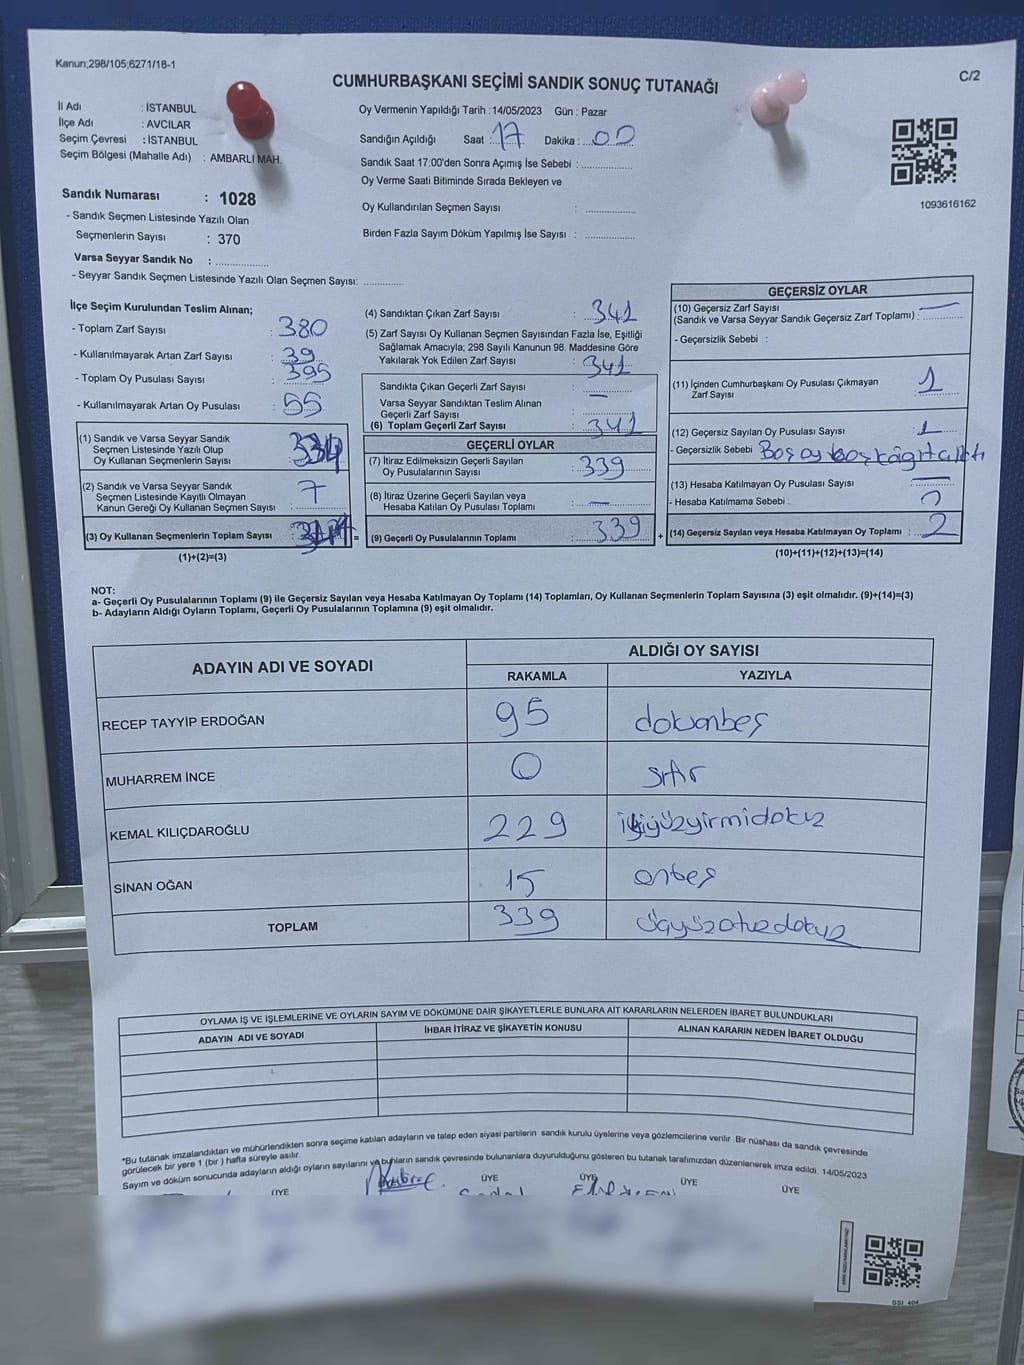 Kanun;298/105;6271/18-1
C/2
CUMHURBAŞKANI SEÇİMİ SANDIK SONUÇ TUTANAĞI
İl Adı : İSTANBUL
İlçe Adı : AVCILAR
Seçim Çevresi : İSTANBUL
Seçim Bölgesi (Mahalle Adı) : AMBARLI MAH.
Sandık Numarası : 1028
- Sandık Seçmen Listesinde Yazılı Olan
Seçmenlerin Sayısı : 370
Varsa Seyyar Sandık No : ................
- Seyyar Sandık Seçmen Listesinde Yazılı Olan Seçmen Sayısı: ............
Oy Vermenin Yapıldığı Tarih :14/05/2023 Gün : Pazar
Sandığın Açıldığı Saat : 17 Dakika : 00
Sandık Saat 17:00'den Sonra Açımış İse Sebebi : ...............
Oy Verme Saati Bitiminde Sırada Bekleyen ve
Oy Kullandırılan Seçmen Sayısı : ...............
Birden Fazla Sayım Döküm Yapılmış İse Sayısı : ...............
1093616162
İlçe Seçim Kurulundan Teslim Alınan;
- Toplam Zarf Sayısı : 380
- Kullanılmayarak Artan Zarf Sayısı : 39
- Toplam Oy Pusulası Sayısı : 395
- Kullanılmayarak Artan Oy Pusulası : 55
(1) Sandık ve Varsa Seyyar Sandık
Seçmen Listesinde Yazılı Olup
Oy Kullanan Seçmenlerin Sayısı : 334
(2) Sandık ve Varsa Seyyar Sandık
Seçmen Listesinde Kayıtlı Olmayan
Kanun Gereği Oy Kullanan Seçmen Sayısı : 7
(3) Oy Kullanan Seçmenlerin Toplam Sayısı :
(1)+(2)=(3)
(4) Sandıktan Çıkan Zarf Sayısı : 341
(5) Zarf Sayısı Oy Kullanan Seçmen Sayısından Fazla İse, Eşitliği
Sağlamak Amacıyla; 298 Sayılı Kanunun 98. Maddesine Göre
Yakılarak Yok Edilen Zarf Sayısı : 341
Sandıkta Çıkan Geçerli Zarf Sayısı : —
Varsa Seyyar Sandıktan Teslim Alınan
Geçerli Zarf Sayısı :
(6) Toplam Geçerli Zarf Sayısı : 341
GEÇERLİ OYLAR
(7) İtiraz Edilmeksizin Geçerli Sayılan
Oy Pusulalarının Sayısı : 339
(8) İtiraz Üzerine Geçerli Sayılan veya
Hesaba Katılan Oy Pusulası Toplamı : —
= (9) Geçerli Oy Pusulalarının Toplamı : 339
GEÇERSİZ OYLAR
(10) Geçersiz Zarf Sayısı
(Sandık ve Varsa Seyyar Sandık Geçersiz Zarf Toplamı) : —
- Geçersizlik Sebebi :
(11) İçinden Cumhurbaşkanı Oy Pusulası Çıkmayan
Zarf Sayısı : 1
(12) Geçersiz Sayılan Oy Pusulası Sayısı : 1
- Geçersizlik Sebebi : Boş oy boş kâğıt
(13) Hesaba Katılmayan Oy Pusulası Sayısı : —
- Hesaba Katılmama Sebebi :
+ (14) Geçersiz Sayılan veya Hesaba Katılmayan Oy Toplamı : 2
(10)+(11)+(12)+(13)=(14)
NOT:
a- Geçerli Oy Pusulalarının Toplamı (9) ile Geçersiz Sayılan veya Hesaba Katılmayan Oy Toplamı (14) Toplamları, Oy Kullanan Seçmenlerin Toplam Sayısına (3) eşit olmalıdır. (9)+(14)=(3)
b- Adayların Aldığı Oyların Toplamı, Geçerli Oy Pusulalarının Toplamına (9) eşit olmalıdır.
ADAYIN ADI VE SOYADI
ALDIĞI OY SAYISI
RAKAMLA YAZIYLA
RECEP TAYYİP ERDOĞAN 95 doksanbeş
MUHARREM İNCE 0 sıfır
KEMAL KILIÇDAROĞLU 229 ikiyüzyirmidokuz
SİNAN OĞAN 15 onbeş
TOPLAM 339 üçyüzotuzdokuz
OYLAMA İŞ VE İŞLEMLERİNE VE OYLARIN SAYIM VE DÖKÜMÜNE DAİR ŞİKAYETLERLE BUNLARA AİT KARARLARIN NELERDEN İBARET BULUNDUKLARI
ADAYIN ADI VE SOYADI İHBAR İTİRAZ VE ŞİKAYETİN KONUSU ALINAN KARARIN NEDEN İBARET OLDUĞU
*Bu tutanak imzalandıktan ve mühürlendikten sonra seçime katılan adayların ve talep eden siyasi partilerin sandık kurulu üyelerine veya gözlemcilerine verilir. Bir nüshası da sandık çevresinde
görülecek bir yere 1 (bir) hafta süreyle asılır.
Sayım ve döküm sonucunda adayların aldığı oyların sayılarını ve bunların sandık çevresinde bulunanlara duyurulduğunu gösteren bu tutanak tarafımızdan düzenlenerek imza edildi. 14/05/2023
ÜYE ÜYE ÜYE ÜYE ÜYE
SSI 404